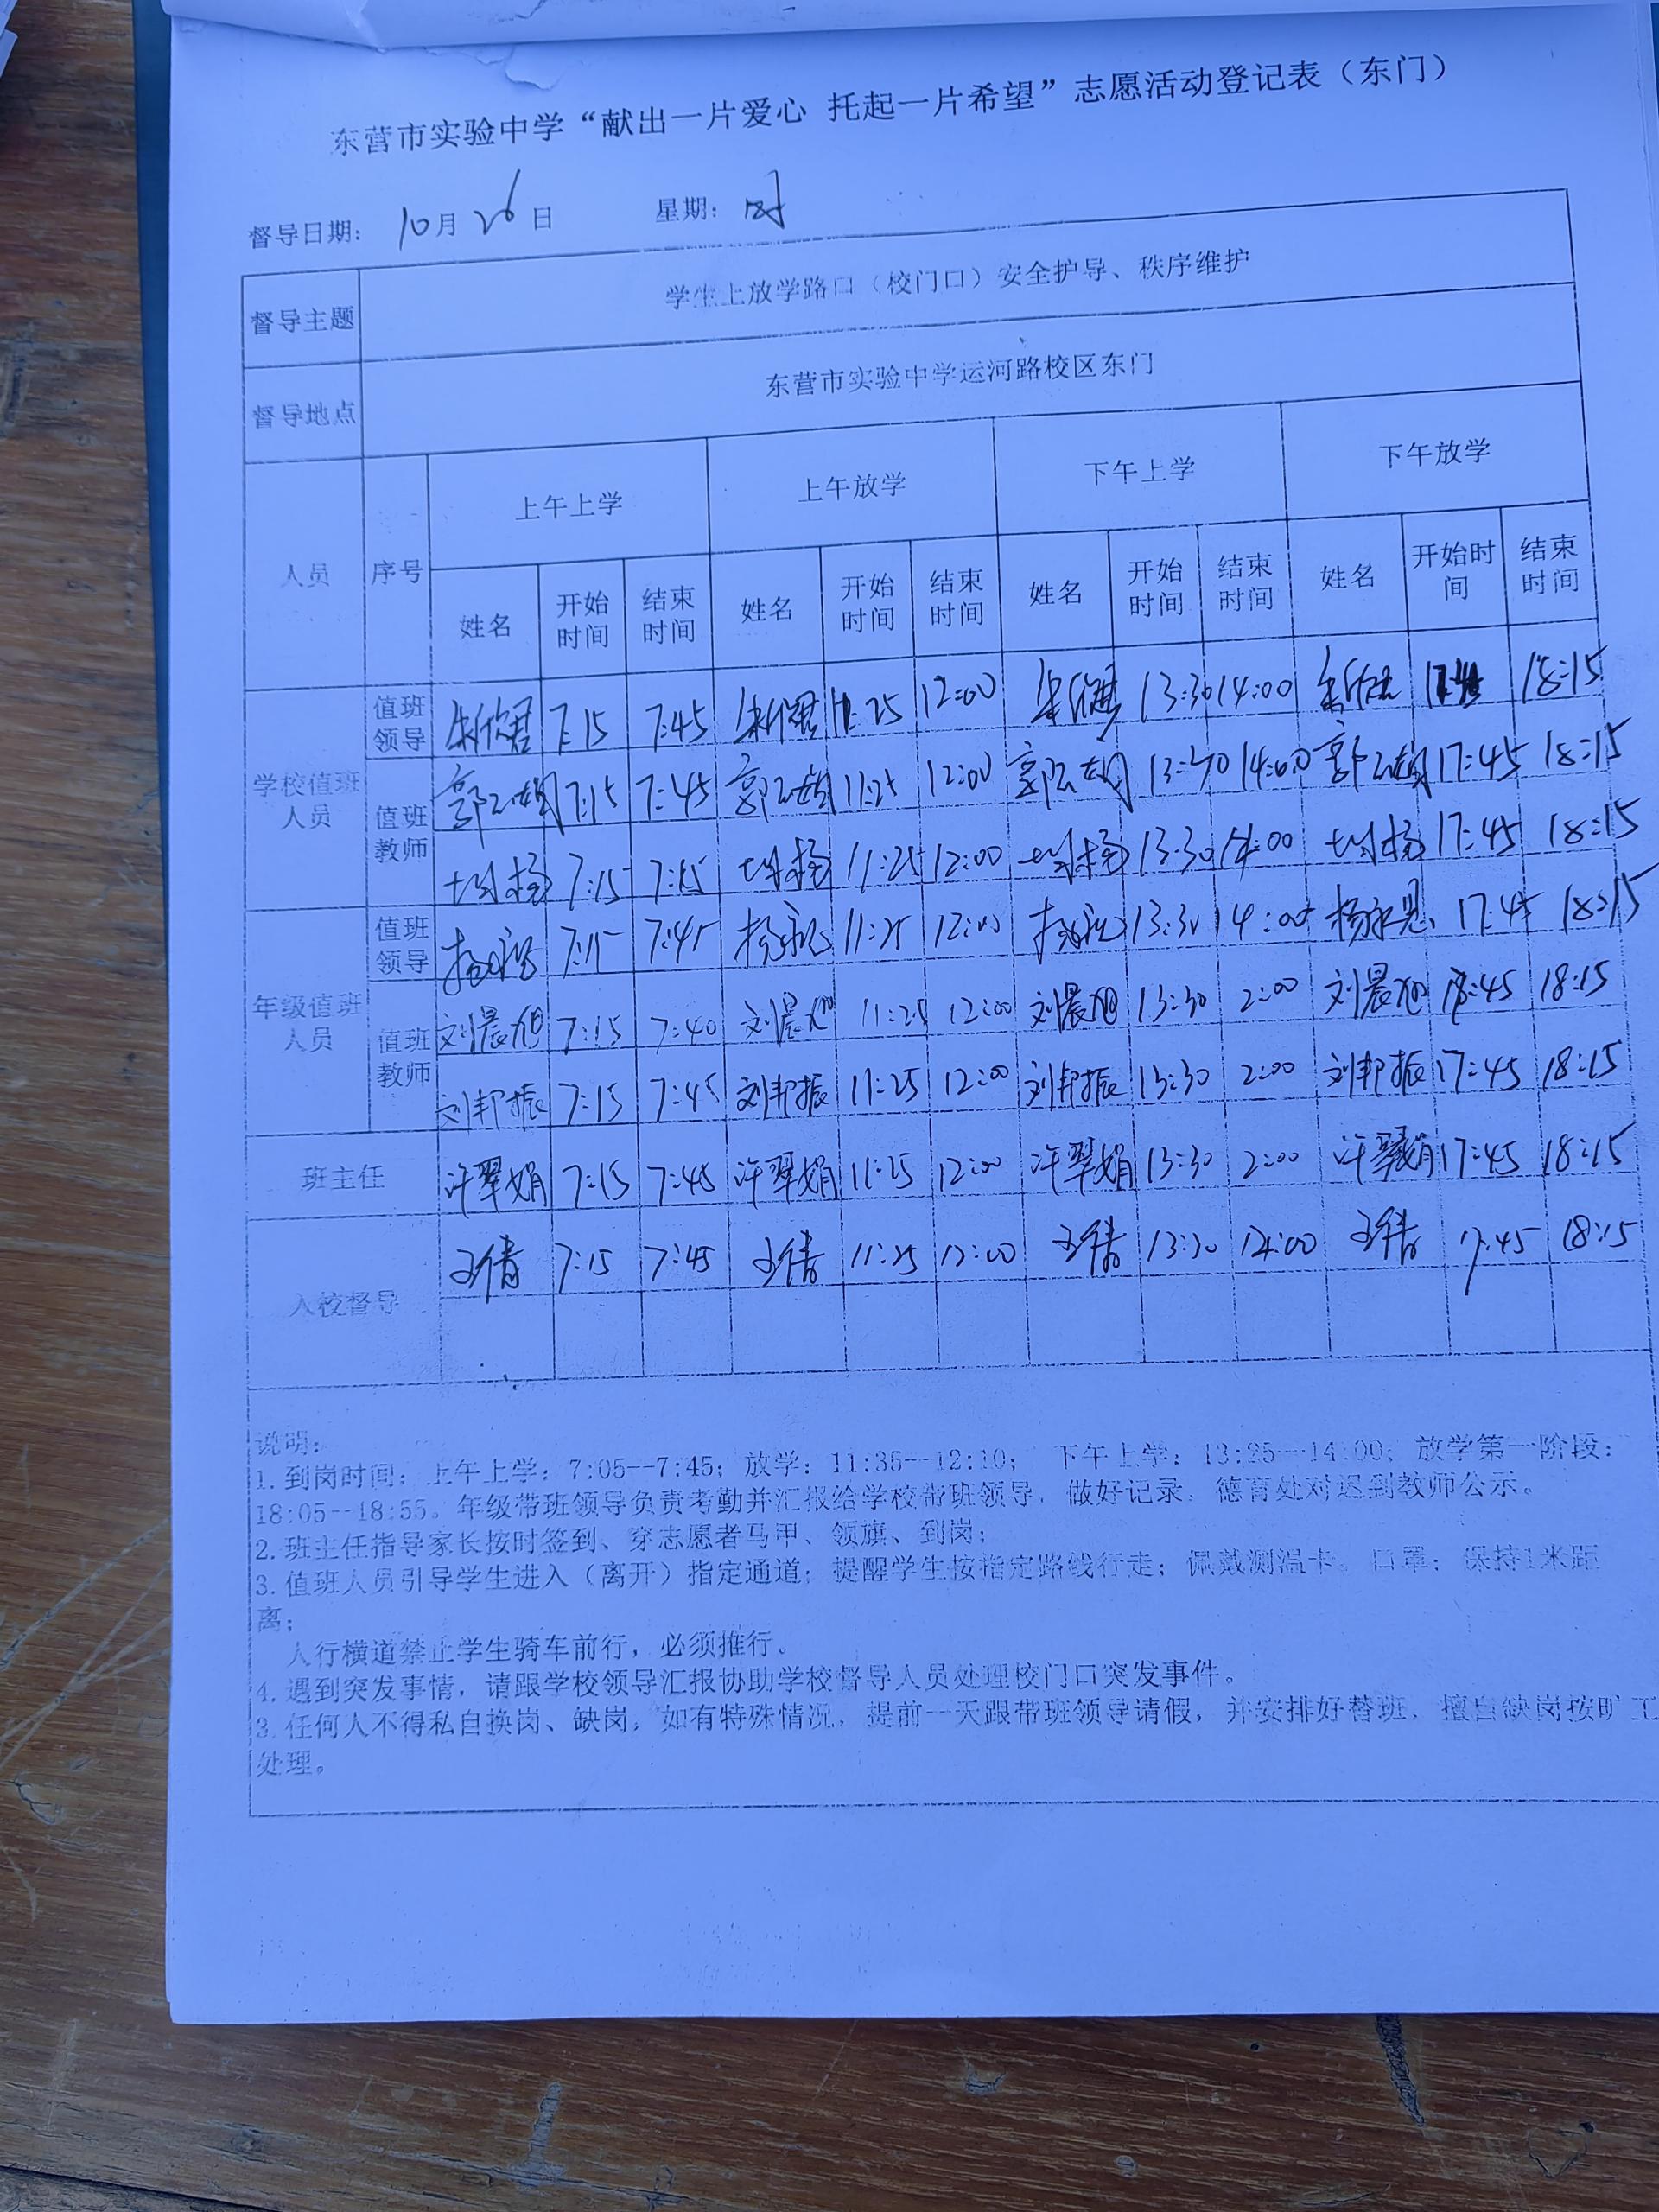 东营市实验中学“献出一片爱心 托起一片希望”志愿活动登记表（东门）
督导日期： 10月26日 星期： 四
督导主题 学生上放学路口（校门口）安全护导、秩序维护
督导地点 东营市实验中学运河路校区东门
人员 序号 上午上学 上午放学 下午上学 下午放学
姓名 开始时间 结束时间 姓名 开始时间 结束时间 姓名 开始时间 结束时间 姓名 开始时间 结束时间
学校值班人员 值班领导 7:15 7:45 11:25 12:00 13:30 14:00 18:15
值班教师 7:15 7:45 11:25 12:00 13:30 14:00 17:45 18:15
7:15 11:25 12:00 13:30 14:00 17:45 18:15
年级值班人员 值班领导 7:15 7:45 11:25 12:00 13:30 14:00 17:45 18:15
值班教师 刘晨旭 7:15 7:40 刘晨旭 11:25 12:00 刘晨旭 13:30 2:00 刘晨旭 18:15
刘邦振 7:15 7:45 刘邦振 11:25 12:00 刘邦振 13:30 2:00 刘邦振 17:45 18:15
班主任 许翠娟 7:15 7:45 许翠娟 11:25 12:00 许翠娟 13:30 2:00 许翠娟 17:45 18:15
入校督导 王倩 7:15 7:45 王倩 11:25 12:00 王倩 13:30 14:00 王倩 17:45 18:15
说明：
1.到岗时间：上午上学：7:05--7:45；放学：11:35--12:10； 下午上学：13:25--14:00；放学第一阶段：
18:05--18:55。年级带班领导负责考勤并汇报给学校带班领导，做好记录，德育处对迟到教师公示。
2.班主任指导家长按时签到、穿志愿者马甲、领旗、到岗；
3.值班人员引导学生进入（离开）指定通道；提醒学生按指定路线行走；佩戴测温卡、口罩；保持1米距
离；
人行横道禁止学生骑车前行，必须推行。
4.遇到突发事情，请跟学校领导汇报协助学校督导人员处理校门口突发事件。
3.任何人不得私自换岗、缺岗，如有特殊情况，提前一天跟带班领导请假，并安排好替班，擅自缺岗按旷工
处理。